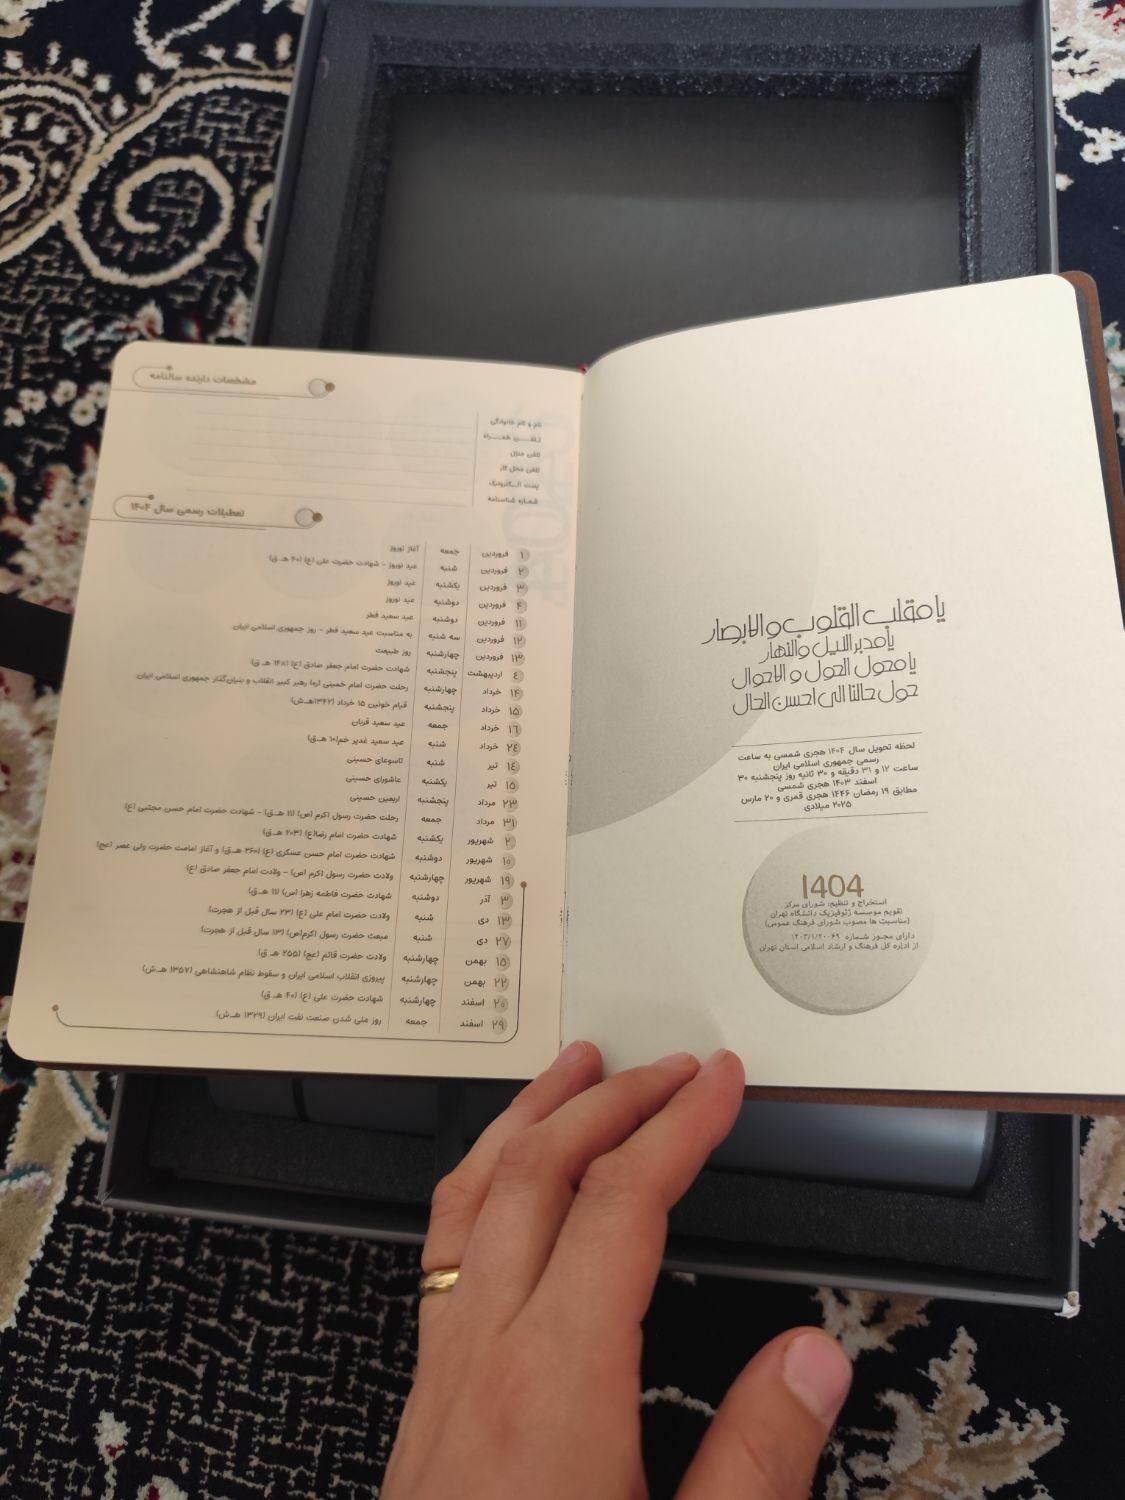 یا مقلب القلوب والابصار
یا مدبر اللیل والنهار
یا محول الحول و الاحوال
حول حالنا الی احسن الحال
لحظه تحویل سال ۱۴۰۴ هجری شمسی به ساعت
رسمی جمهوری اسلامی ایران
ساعت ۱۲ و ۳۱ دقیقه و ۳۰ ثانیه روز پنجشنبه ۳۰
اسفند ۱۴۰۳ هجری شمسی
مطابق ۱۹ رمضان ۱۴۴۶ هجری قمری و ۲۰ مارس
۲۰۲۵ میلادی
1404
استخراج و تنظیم: شورای مرکز
تقویم موسسه ژئوفیزیک دانشگاه تهران
(مناسبت ها مصوب شورای فرهنگ عمومی)
دارای مجوز شماره ۱۴۰۳/۱/۲۰۰۶۹
از اداره کل فرهنگ و ارشاد اسلامی استان تهران
مشخصات دارنده سالنامه
نام و نام خانوادگی
تلفن همراه
تلفن منزل
تلفن محل کار
پست الکترونیک
شماره شناسنامه
تعطیلات رسمی سال ۱۴۰۴
۱ فروردین جمعه آغاز نوروز
۲ فروردین شنبه عید نوروز - شهادت حضرت علی (ع) (۴۰ هـ ق)
۳ فروردین یکشنبه عید نوروز
۴ فروردین دوشنبه عید نوروز
۱۱ فروردین دوشنبه عید سعید فطر
۱۲ فروردین سه شنبه به مناسبت عید سعید فطر - روز جمهوری اسلامی ایران
۱۳ فروردین چهارشنبه روز طبیعت
۴ اردیبهشت پنجشنبه شهادت حضرت امام جعفر صادق (ع) (۱۴۸ هـ ق)
۱۴ خرداد چهارشنبه رحلت حضرت امام خمینی (ره) رهبر کبیر انقلاب و بنیان‌گذار جمهوری اسلامی ایران
۱۵ خرداد پنجشنبه قیام خونین ۱۵ خرداد (۱۳۴۲هـ ش)
۱۶ خرداد جمعه عید سعید قربان
۲۴ خرداد شنبه عید سعید غدیر خم(۱۰ هـ ق)
۱۴ تیر شنبه تاسوعای حسینی
۱۵ تیر یکشنبه عاشورای حسینی
۲۳ مرداد پنجشنبه اربعین حسینی
۳۱ مرداد جمعه رحلت حضرت رسول اکرم (ص) (۱۱ هـ ق) - شهادت حضرت امام حسن مجتبی (ع)
۲ شهریور یکشنبه شهادت حضرت امام رضا(ع) (۲۰۳ هـ ق)
۱۰ شهریور دوشنبه شهادت حضرت امام حسن عسکری (ع) (۲۶۰ هـ ق) و آغاز امامت حضرت ولی عصر (عج)
۱۹ شهریور چهارشنبه ولادت حضرت رسول اکرم (ص) - ولادت امام جعفر صادق (ع)
۳ آذر دوشنبه شهادت حضرت فاطمه زهرا (س) (۱۱ هـ ق)
۱۳ دی شنبه ولادت حضرت امام علی (ع) (۲۳ سال قبل از هجرت)
۲۷ دی شنبه مبعث حضرت رسول اکرم(ص) (۱۳ سال قبل از هجرت)
۱۵ بهمن چهارشنبه ولادت حضرت قائم (عج) (۲۵۵ هـ ق)
۲۲ بهمن چهارشنبه پیروزی انقلاب اسلامی ایران و سقوط نظام شاهنشاهی (۱۳۵۷ هـ ش)
۲۰ اسفند چهارشنبه شهادت حضرت علی (ع) (۴۰ هـ ق)
۲۹ اسفند جمعه روز ملی شدن صنعت نفت ایران (۱۳۲۹ هـ ش)